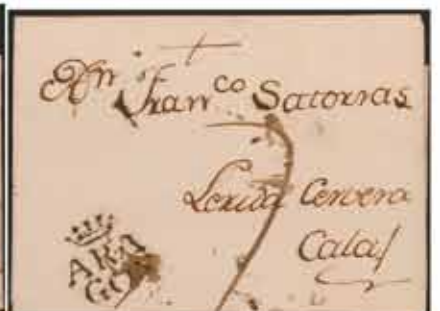 Dn Franco Satorras
Lerida Cervera
Calaf
ARA
GON